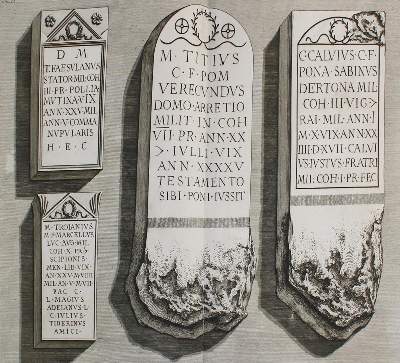 D M
T. FAESULANVS
STATOR MIL COH
III PR POLLIA
MVTINA VIX
ANN XXV MIL
ANN V COMMA
NVPVLARIS
H E C
M. TROIANIVS
M. F MARCELLVS
LVC AVG MIL
COH X PR
SCIPIONIS
MEN LIB VIX
MIL AN V
L. MAGIVS
C. IVLIVS
TIBERINVS
AMICI
M. TITIVS
C. F. POM
VERECVNDVS
DOMO ARRETIO
MILIT IN COH
VII PR ANN XX
> IVLLI VIX
ANN XXXXV
TESTAMENTO
SIBI PONI IVSSIT
C. CALVIVS C. F
PONA SABINVS
DERTONA MIL
COH III VIG >
RAI MIL ANN I
M XVIX ANN XX
IIII D XVII CALVI
VS IVSTVS FRATRI
MIL COH I PR FEC